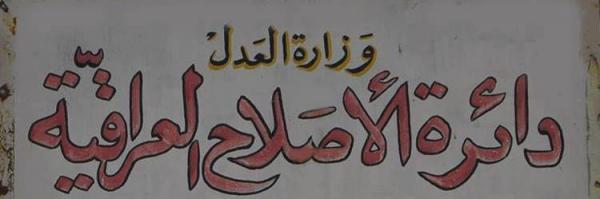 وزارة العدل
دائرة الأصلاح العراقيّة